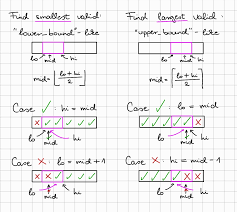 Find smallest valid:
"lower-bound"-like
lo mid hi
mid = ⌊(lo+hi)/2⌋
Case ✓: hi = mid
x ✓ ✓ ✓ ✓ ✓
lo mid hi
Case ✗: lo = mid+1
x x x ✓ ✓ ✓
lo mid hi
Find largest valid:
"upper-bound"-like
lo mid hi
mid = ⌈(lo+hi)/2⌉
Case ✓: lo = mid
✓ ✓ ✓ ✓ x x
lo mid hi
Case ✗: hi = mid-1
lo mid hi